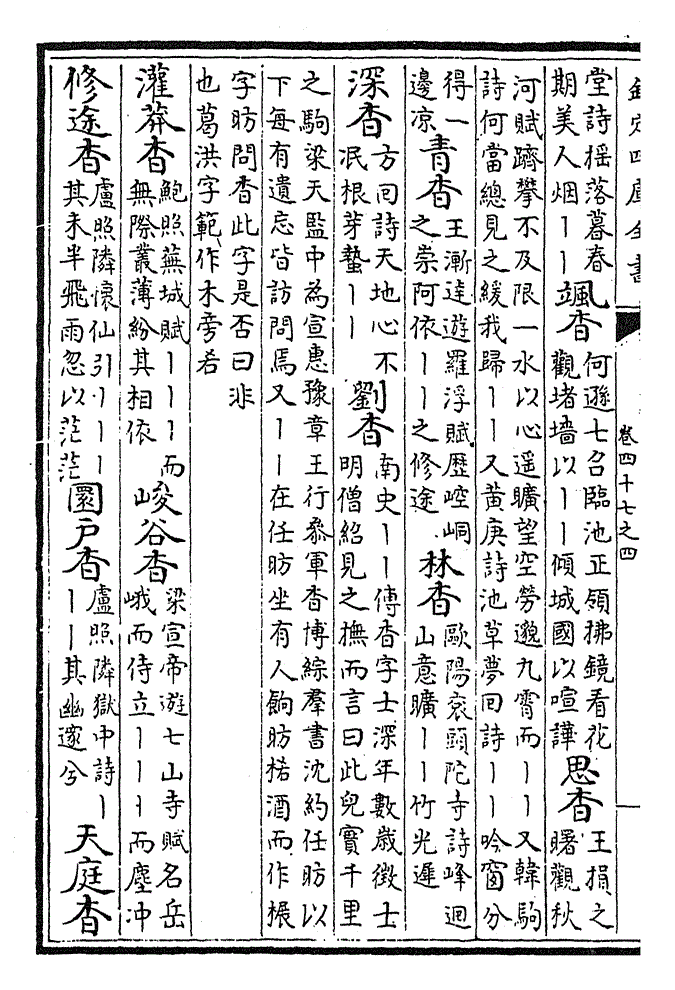 欽定四庫全書
卷四十七之四
堂詩揺落暮春
期美人烟丨丨
颯杳
何遜七召臨池正領拂鏡看花
觀堵墻以丨丨傾城國以喧譁
思杳
王損之
曙觀秋
河賦躋攀不及限一水以心遥曠望空勞邈九霄而丨丨又韓駒
詩何當總見之緩我歸丨丨又黃庚詩池草夢回詩丨丨吟窗分
得一
邊凉
青杳
王漸逵遊羅浮賦歴崆峒
之崇阿依丨丨之修途
林杳
歐陽衮頭陀寺詩峰迴
山意曠丨丨竹光遲
深杳
方回詩天地心不
泯根芽蟄丨丨
劉杳
南史丨丨傳杳字士深年數歲徴士
明僧紹見之撫而言曰此兒實千里
之駒梁天監中為宣惠豫章王行叅軍杳博綜羣書沈約任昉以
下每有遺忘皆訪問焉又丨丨在任昉坐有人餉昉楉酒而作榐
字昉問杳此字是否曰非
也葛洪字範作木旁若
灌莽杳
鮑照蕪城賦丨丨丨而
無際叢薄紛其相依
峻谷杳
梁宣帝遊七山寺賦名岳
峨而侍立丨丨丨而塵冲
修途杳
盧照隣懷仙引丨丨丨
其未半飛雨忽以茫茫
圜戸杳
盧照隣獄中詩丨
丨丨其幽邃兮
天庭杳